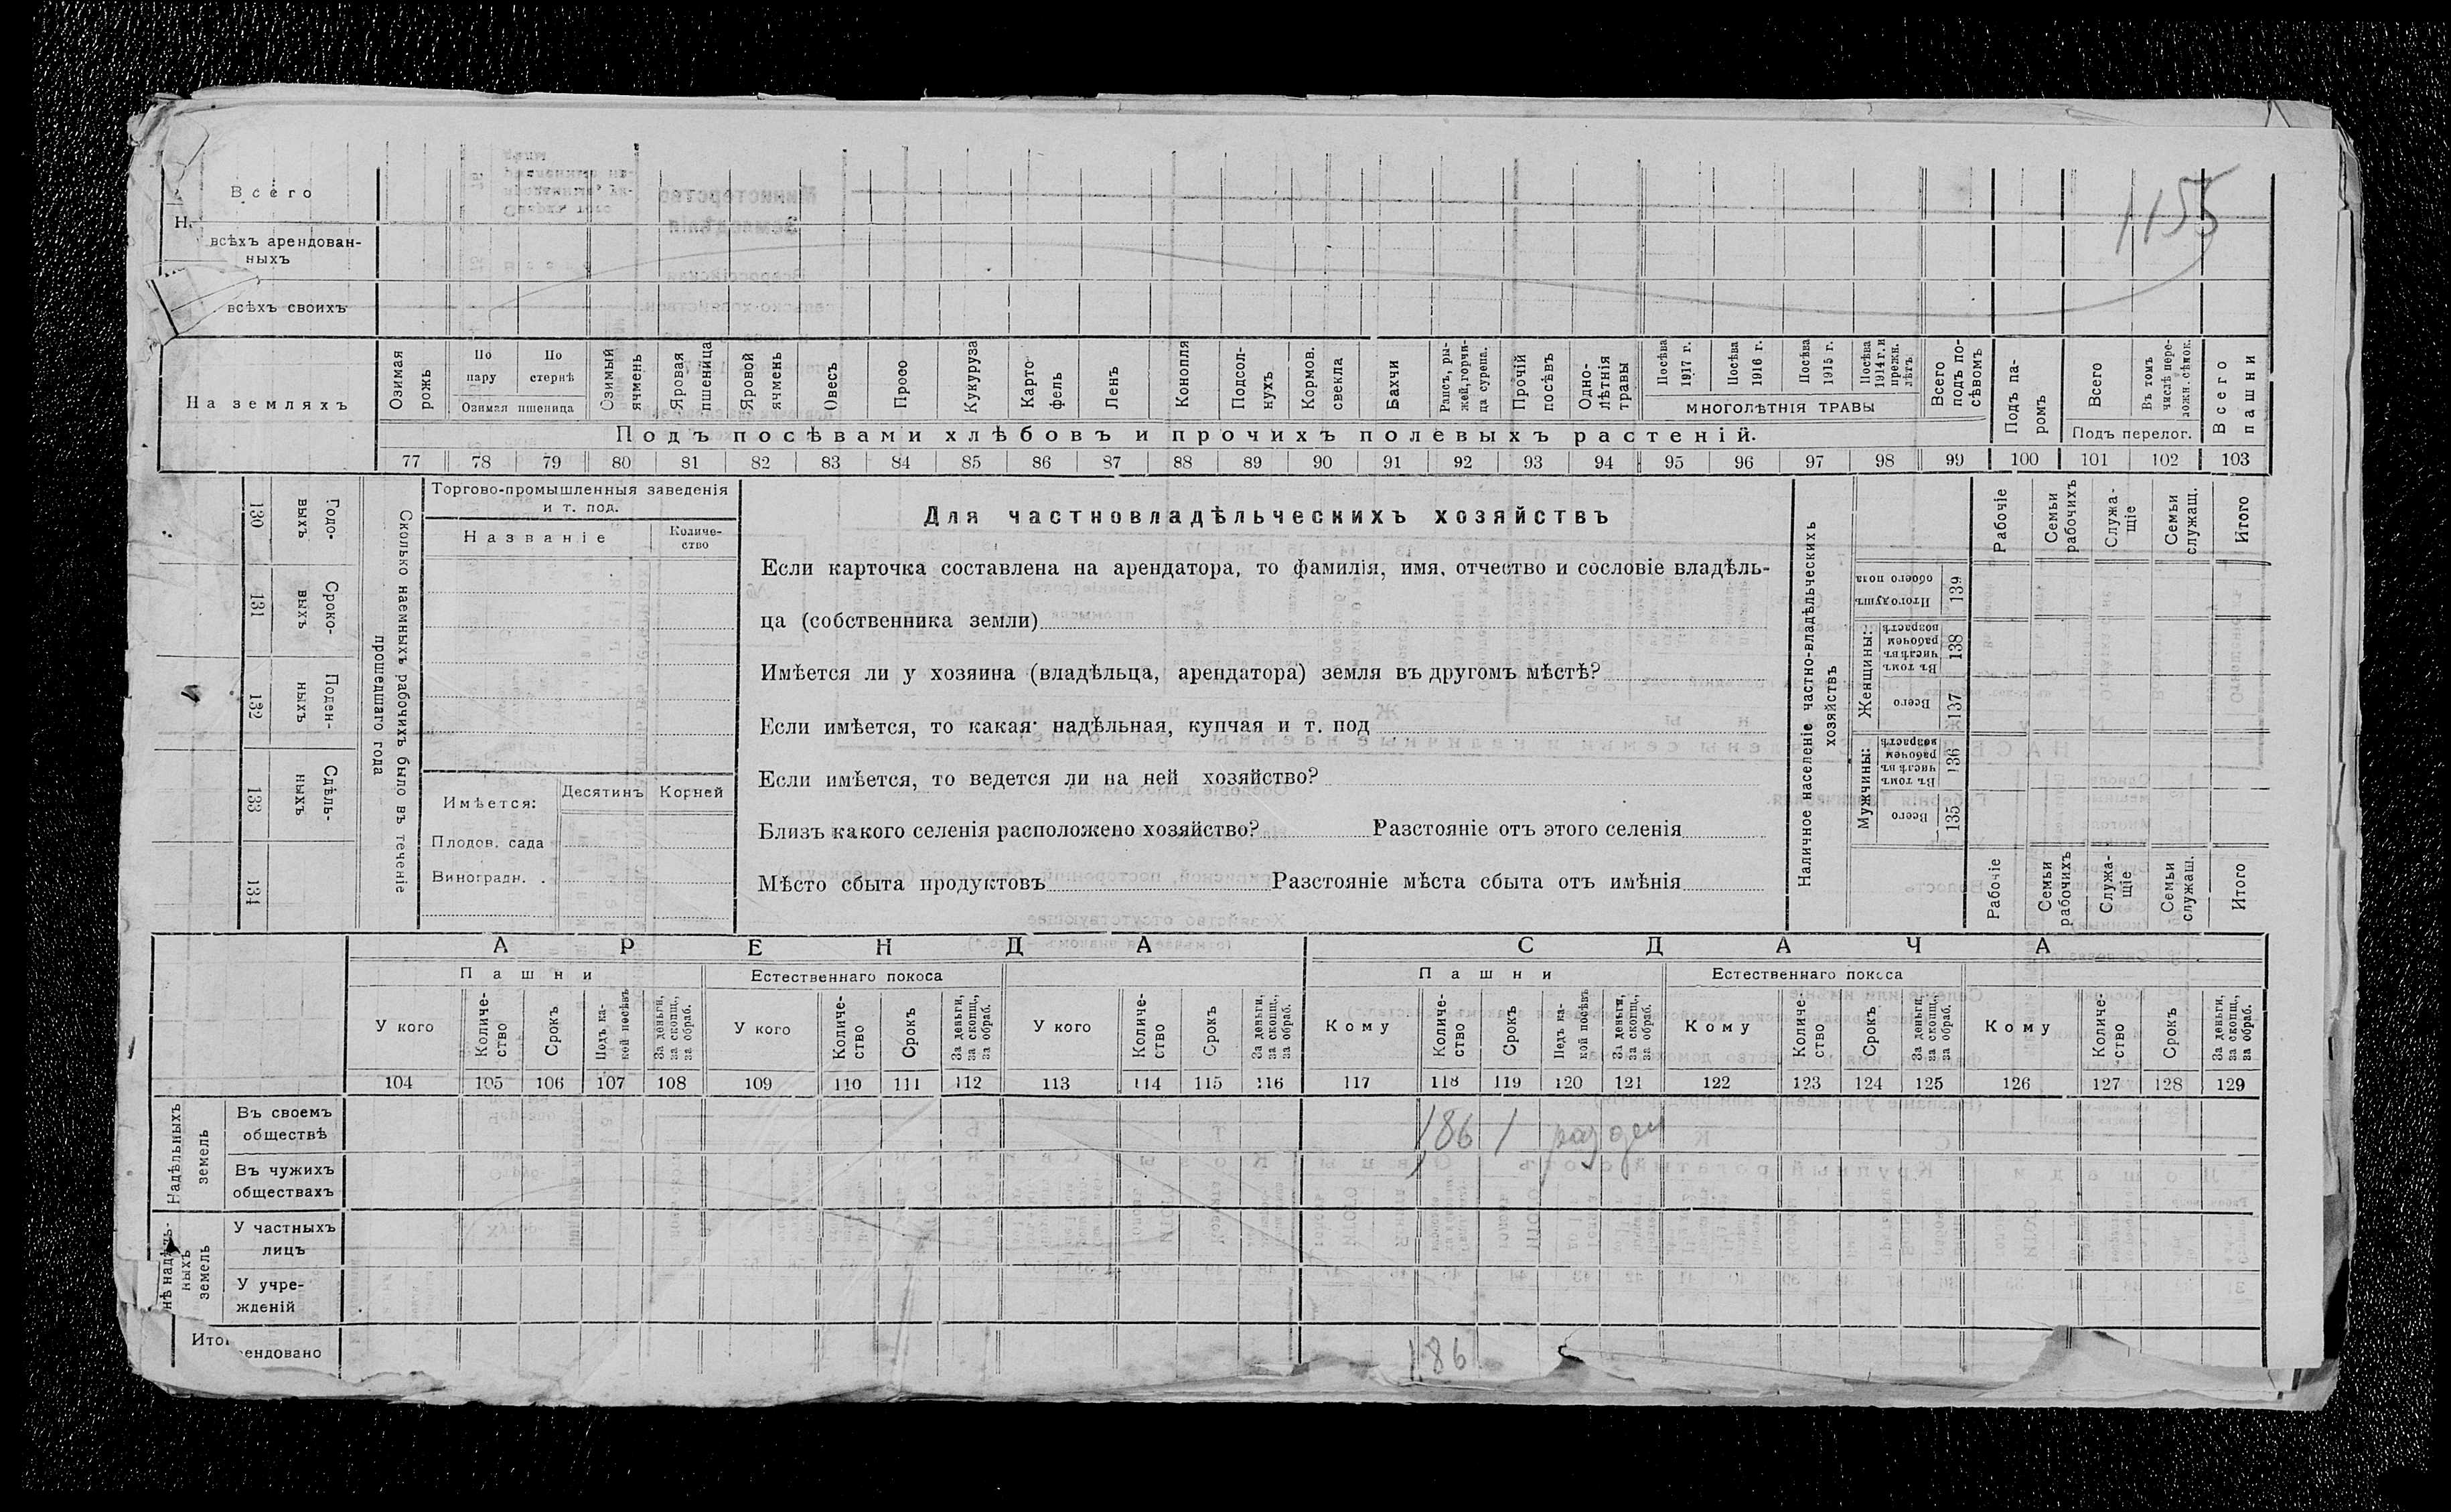 1155
Всего
всѣхъ арендован-
ныхъ
всѣхъ своихъ
На земляхъ
Озимая рожь
По пару
По стернѣ
Озимая пшеница
Озимый ячмень
Яровая пшеница
Яровой ячмень
Овесъ
Просо
Кукуруза
Карто фель
Ленъ
Конопля
Подсол- нухъ
Кормов. свекла
Бахчи
Рапсъ, ры- жей, горчи- ца сурепа.
Прочій посѣвъ
Одно- лѣтнія травы
Посѣва 1917 г.
Посѣва 1916 г.
Посѣва 1915 г.
Посѣва 1914 г. и прежн. лѣтъ.
МНОГОЛѢТНІЯ ТРАВЫ
Всего подъ по- сѣвомъ
Подъ па- ромъ
Всего
Въ томъ числѣ пере- ложн. сѣнок.
Подъ перелог.
Всего пашни
Подъ посѣвами хлѣбовъ и прочихъ полевыхъ растеній.
77 78 79 80 81 82 83 84 85 86 87 88 89 90 91 92 93 94 95 96 97 98 99 100 101 102 103
130 Годо- выхъ
131 Сроко- выхъ
132 Поден- ныхъ
133 Сдѣль- ныхъ
134
Сколько наемныхъ рабочихъ было въ теченіе
прошедшаго года
Торгово-промышленныя заведенія
и т. под.
Названіе
Количе-
ство
Имѣется:
Десятинъ
Корней
Плодов. сада
Виноградн. .
Для частновладѣльческихъ хозяйствъ
Если карточка составлена на арендатора, то фамилія, имя, отчество и сословіе владѣль-
ца (собственника земли)
Имѣется ли у хозяина (владѣльца, арендатора) земля въ другомъ мѣстѣ?
Если имѣется, то какая: надѣльная, купчая и т. под
Если имѣется, то ведется ли на ней хозяйство?
Близъ какого селенія расположено хозяйство? Разстояніе отъ этого селенія
Мѣсто сбыта продуктовъ Разстояніе мѣста сбыта отъ имѣнія
Наличное населеніе частно-владѣльческихъ
хозяйствъ
Рабочіе
Семьи рабочихъ
Служа- щіе
Семьи служащ.
Итого
Итого душъ обоего пола 139
Женщины:
Въ томъ числѣ въ рабочемъ возрастѣ 138
Всего 137
Мужчины:
Въ томъ числѣ въ рабочемъ возрастѣ 136
Всего 135
Рабочіе
Семьи рабочихъ
Служа- щіе
Семьи служащ.
Итого
АРЕНДА
СДАЧА
Пашни
Естественнаго покоса
Пашни
Естественнаго покоса
У кого
Количе- ство
Срокъ
Подъ ка- кой посѣвъ
За деньги, за скопщ., за обраб.
У кого
Количе- ство
Срокъ
За деньги, за скопщ., за обраб.
У кого
Количе- ство
Срокъ
За деньги, за скопщ., за обраб.
Кому
Количе- ство
Срокъ
Подъ ка- кой посѣвъ
За деньги, за скопщ., за обраб.
Кому
Количе- ство
Срокъ
За деньги, за скопщ., за обраб.
Кому
Количе- ство
Срокъ
За деньги, за скопщ., за обраб.
104 105 106 107 108 109 110 111 112 113 114 115 116 117 118 119 120 121 122 123 124 125 126 127 128 129
Надѣльныхъ
земель
Въ своемъ
обществѣ
186 1
Въ чужихъ
обществахъ
ныхъ
земель
У частныхъ
лицъ
У учре-
жденій
186